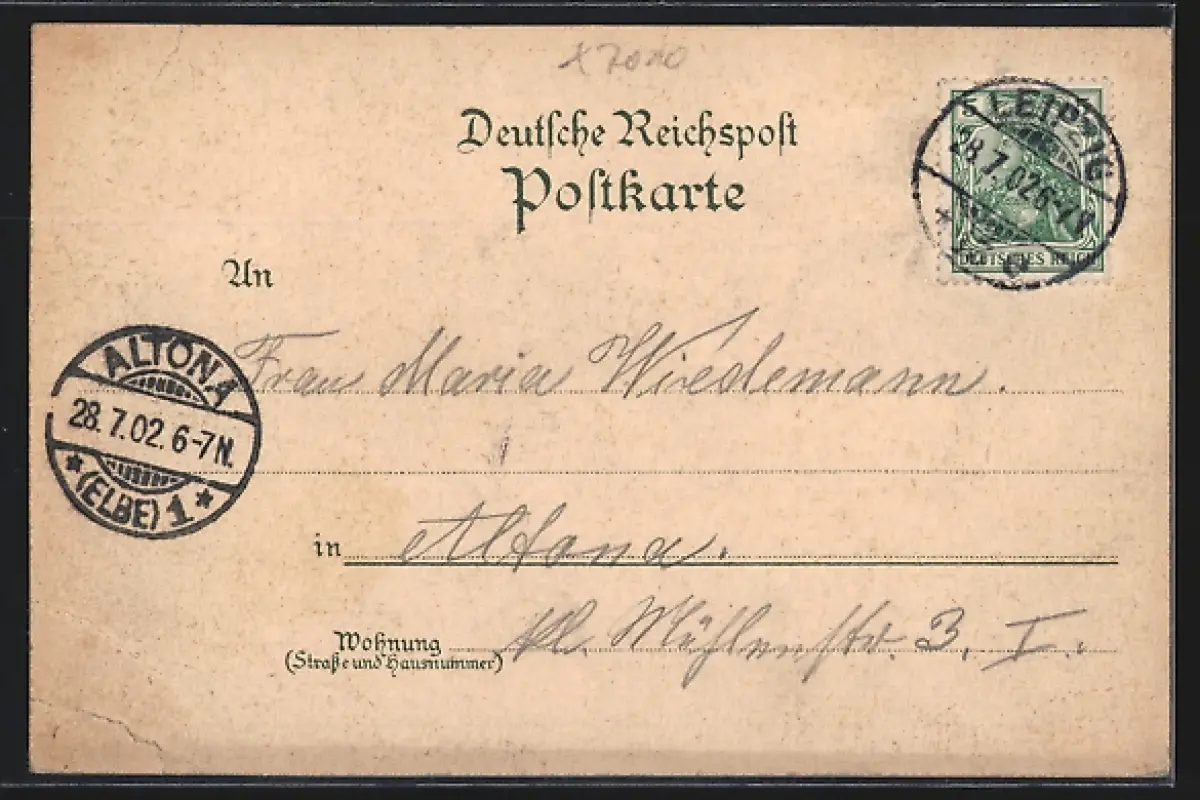 x 7010
Deutsche Reichspost
Postkarte
5
LEIPZIG
28.7.02 6-7 V
DEUTSCHES REICH
An
ALTONA
28.7.02.6-7N.
(ELBE) 1
Frau Maria Wiedemann.
in Altona.
Wohnung
(Straße und Hausnummer)
kl. Mühlenstr. 3, I.